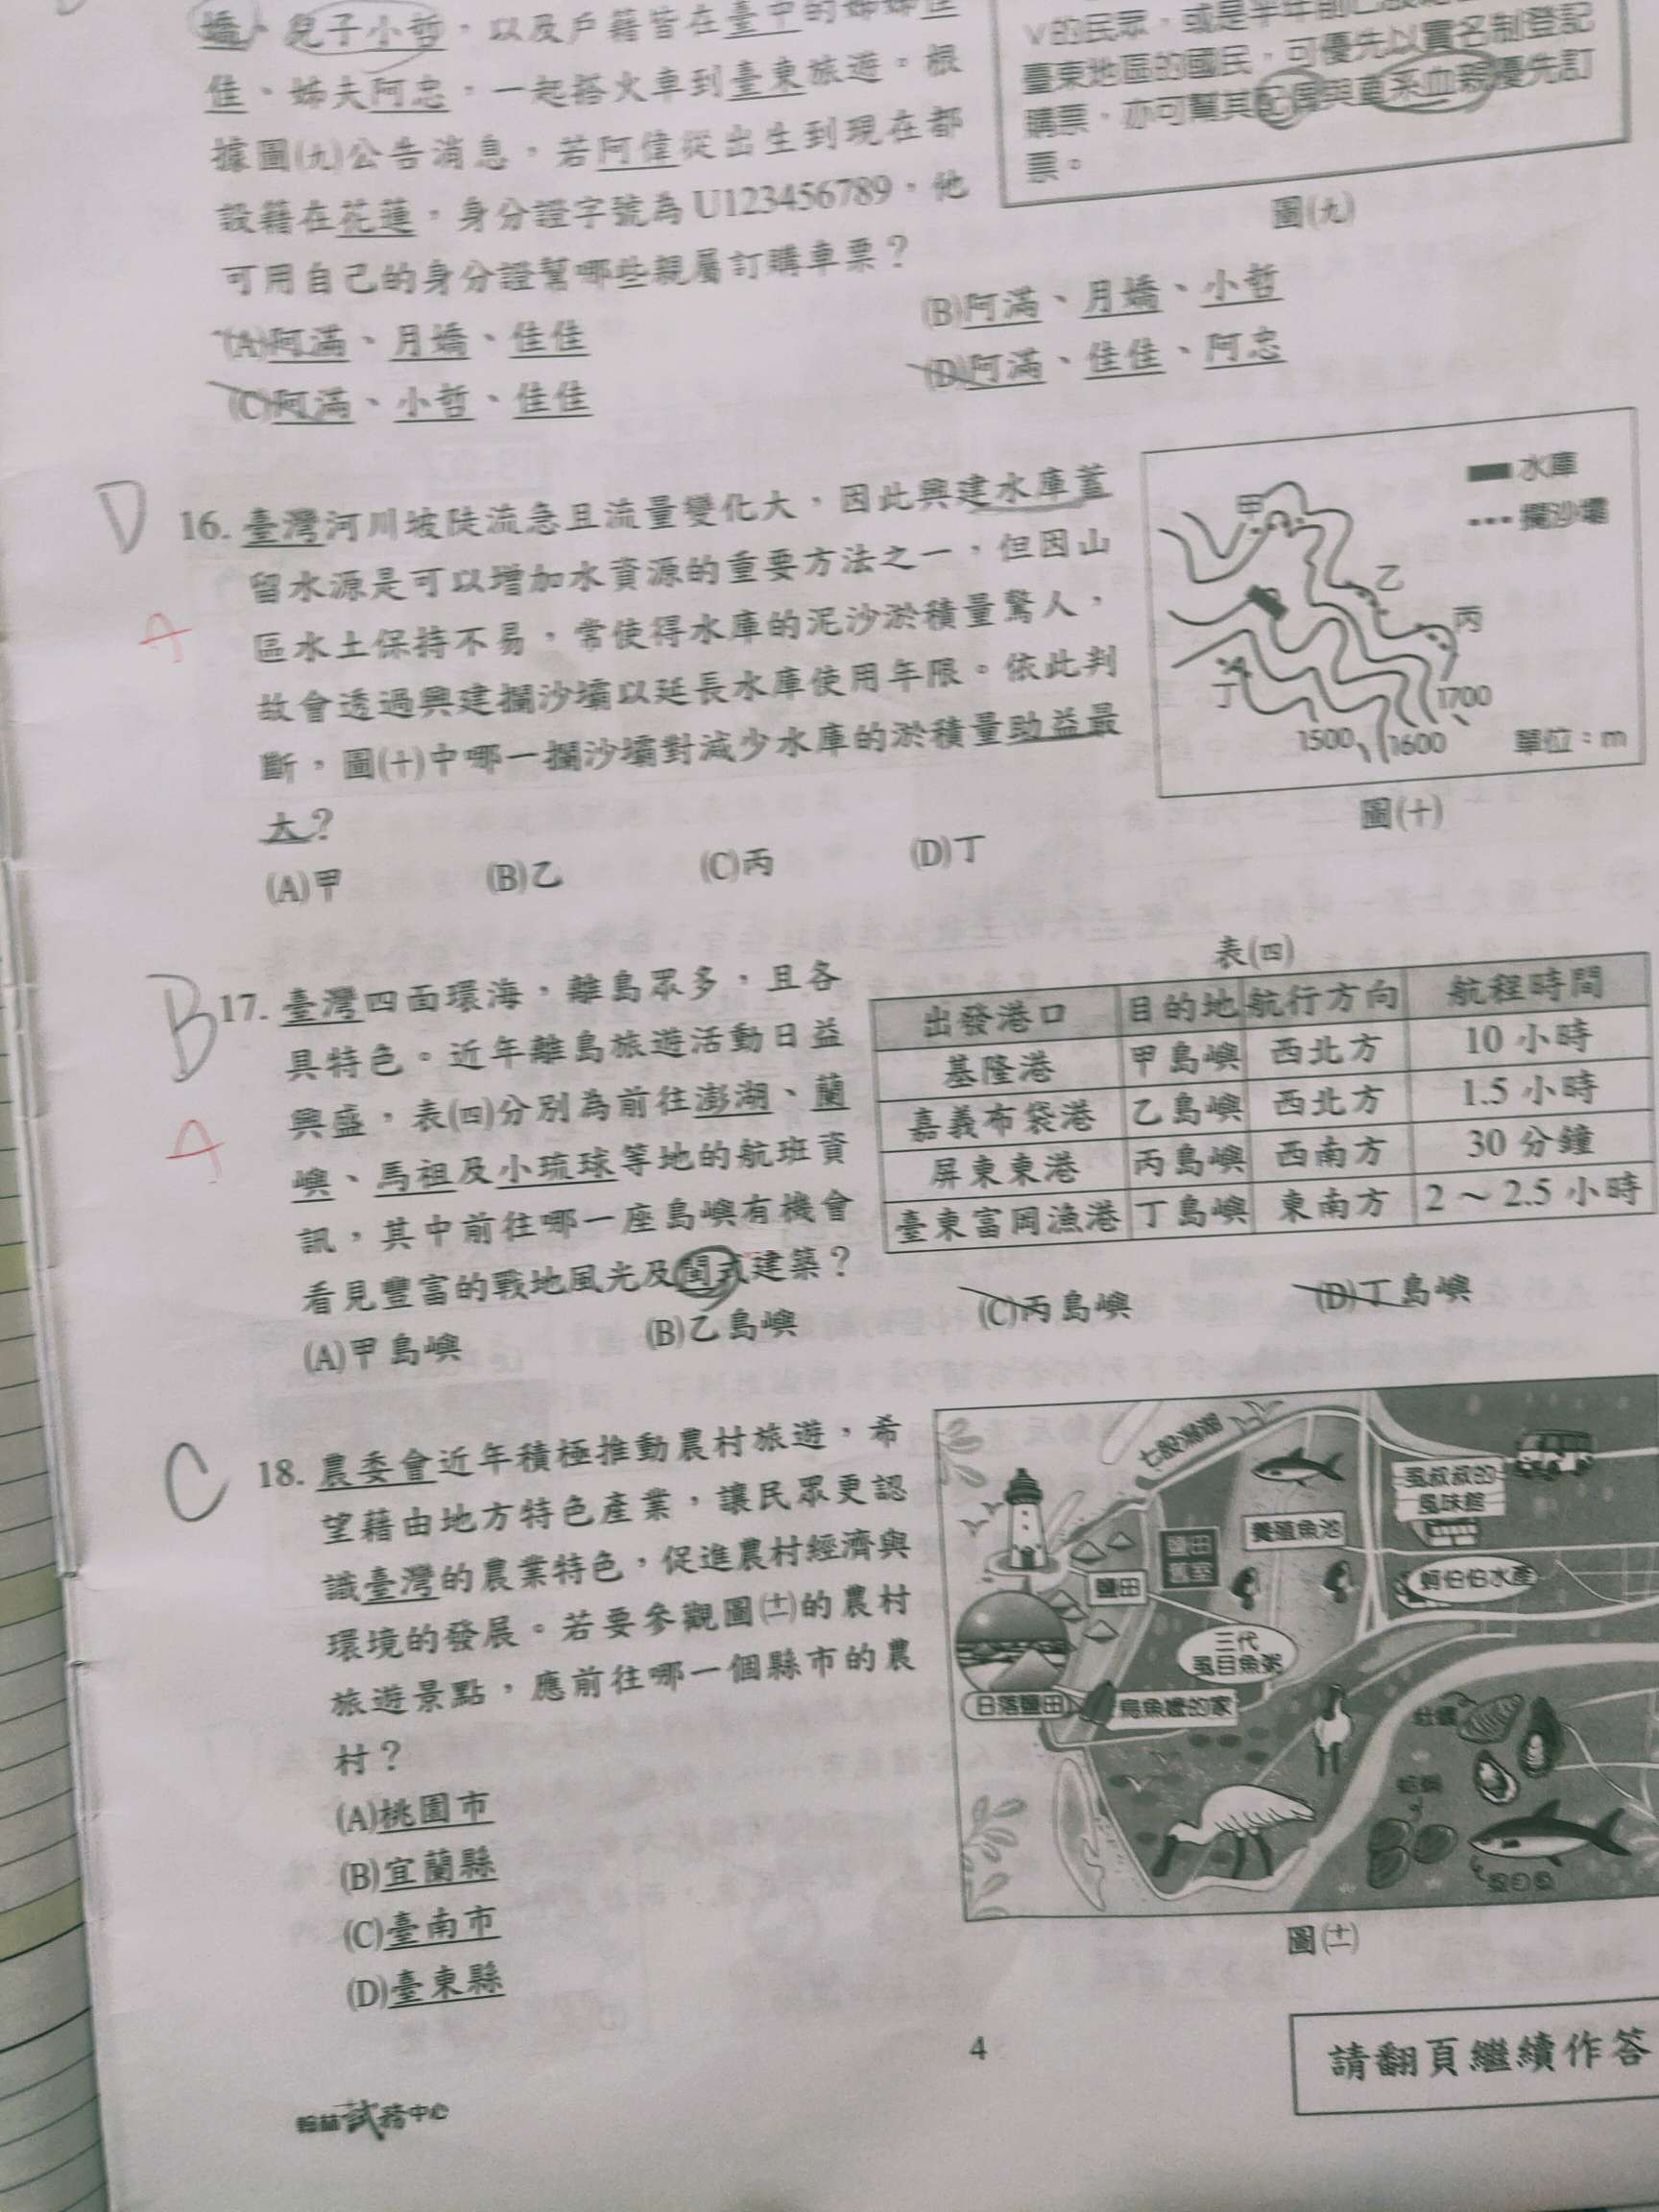 嬌、兒子小哲,以及戶籍皆在臺中的姊姊佳
佳、姊夫阿忠,一起搭火車到臺東旅遊。根
據圖(九)公告消息,若阿偉從出生到現在都
設籍在花蓮,身分證字號為U123456789,他
可用自己的身分證幫哪些親屬訂購車票?
(A)阿滿、月嬌、佳佳
(B)阿滿、月嬌、小哲
(C)阿滿、小哲、佳佳
(D)阿滿、佳佳、阿忠
V的民眾,或是半年前已設籍
臺東地區的國民,可優先以實名制登記
購票,亦可幫其配偶與直系血親優先訂
票。
圖(九)
D
16. 臺灣河川坡陡流急且流量變化大,因此興建水庫蓄
留水源是可以增加水資源的重要方法之一,但因山
A
區水土保持不易,常使得水庫的泥沙淤積量驚人,
故會透過興建攔沙壩以延長水庫使用年限。依此判
斷,圖(十)中哪一攔沙壩對減少水庫的淤積量助益最
大?
(A)甲
(B)乙
(C)丙
(D)丁
水庫
攔沙壩
甲
乙
丙
丁
1700
1500
1600
單位:m
圖(十)
B
17. 臺灣四面環海,離島眾多,且各
具特色。近年離島旅遊活動日益
興盛,表(四)分別為前往澎湖、蘭
A
嶼、馬祖及小琉球等地的航班資
訊,其中前往哪一座島嶼有機會
看見豐富的戰地風光及閩式建築?
(A)甲島嶼
(B)乙島嶼
(C)丙島嶼
(D)丁島嶼
表(四)
出發港口 目的地 航行方向 航程時間
基隆港 甲島嶼 西北方 10 小時
嘉義布袋港 乙島嶼 西北方 1.5 小時
屏東東港 丙島嶼 西南方 30 分鐘
臺東富岡漁港 丁島嶼 東南方 2 ~ 2.5 小時
C
18. 農委會近年積極推動農村旅遊,希
望藉由地方特色產業,讓民眾更認
識臺灣的農業特色,促進農村經濟與
環境的發展。若要參觀圖(十一)的農村
旅遊景點,應前往哪一個縣市的農
村?
(A)桃園市
(B)宜蘭縣
(C)臺南市
(D)臺東縣
七股潟湖
虱叔叔的
風味館
養殖魚池
鹽田
鹽田
蚵伯伯水產
三代
虱目魚粥
日落鹽田
烏魚爐的家
牡蠣
虱目魚
圖(十一)
4
請翻頁繼續作答
翰林試務中心